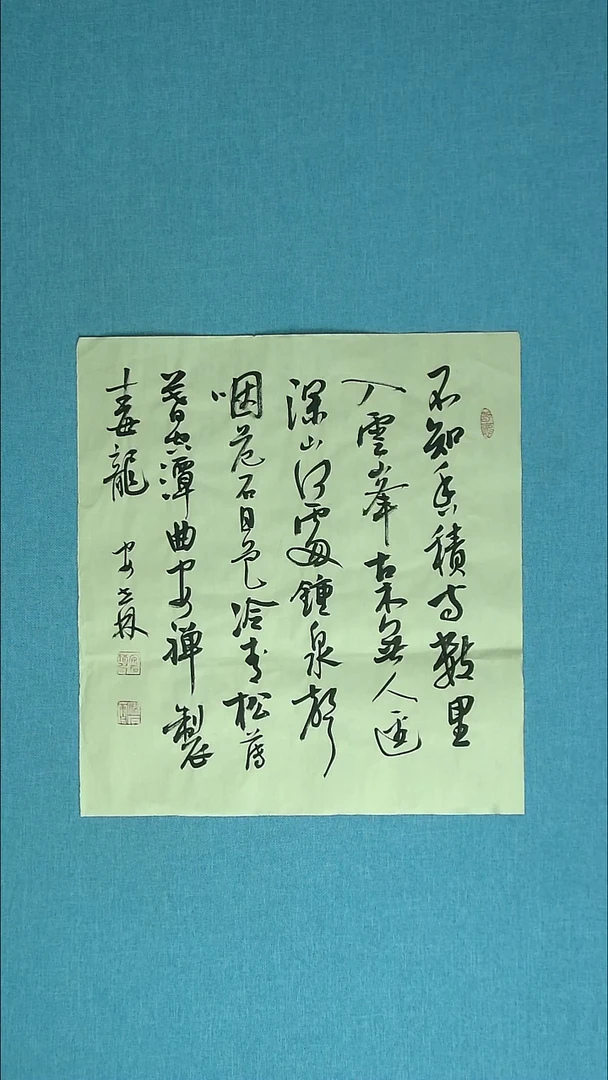 不知香積寺數里
入雲峯古木無人逕
深山何處鍾泉聲
咽危石日色冷青松薄
暮空潭曲安禪製
毒龍